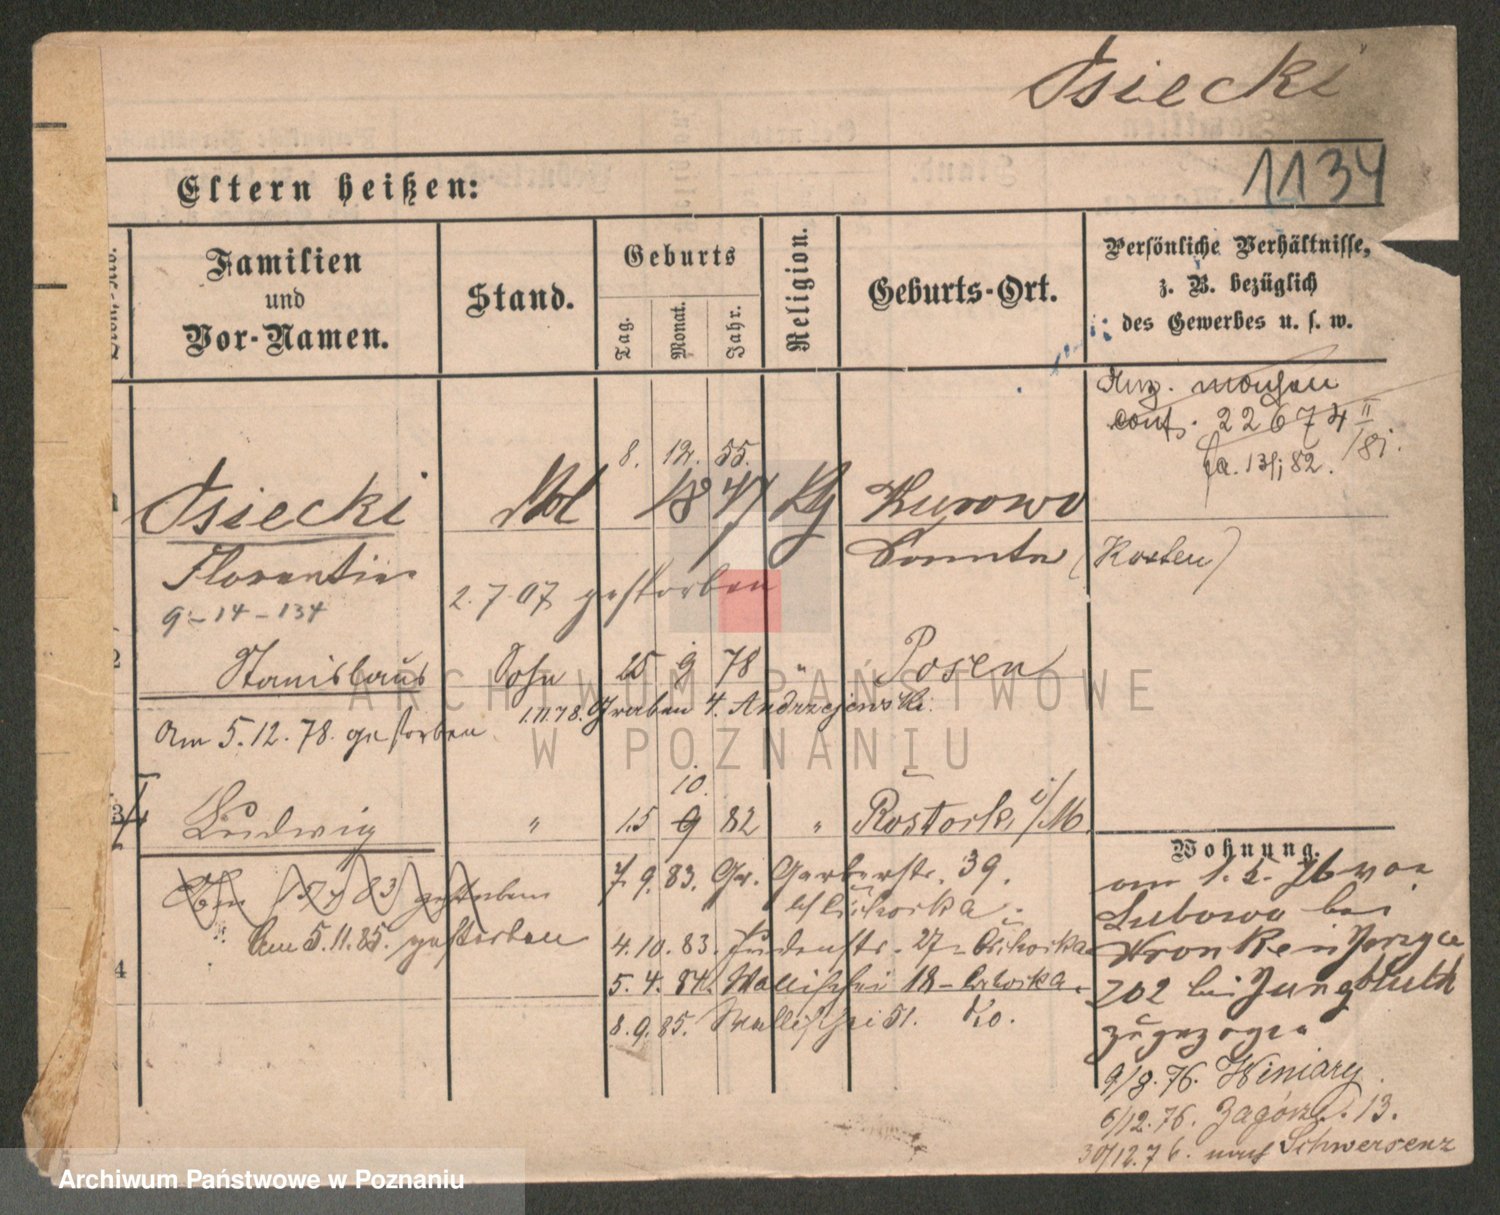 Osiecki
1134
Eltern heißen:
Familien
und
Vor-Namen.
Stand.
Geburts
Tag.
Monat.
Jahr.
Religion.
Geburts-Ort.
Persönliche Verhältnisse,
z. B. bezüglich
des Gewerbes u. s. w.
conf. 22674 II
/81.
13/1 82.
8. 12. 55.
1 Osiecki 1847 Kurowo
Florentine (Kosten)
2.7 07 gestorben
9-14-134
2 Stanislaus Sohn 25 9 78 " Posen
1.11.78. Graben 4. Andrzejewski.
Am 5.12.78. gestorben
10.
3 Ludwig " 15 9 82 " Rostock i/M.
7.9.83. Gr. Gerberstr. 39.
gestorben
Am 5.11.85. gestorben
4.10.83. Judenstr. 27
4
5.4.84. Wallischei 18
8.9.85. Wallischei 51.
Wohnung.
am 1.5.76 von
Lubowo bei
Wronke in Jerzyce
202 bei Jungbluth
zugezogen
9/8.76. Winiary
6/12.76. Zagórze. 13.
30/12.76. nach Schwersenz
ARCHIWUM PAŃSTWOWE
W POZNANIU
Archiwum Państwowe w Poznaniu